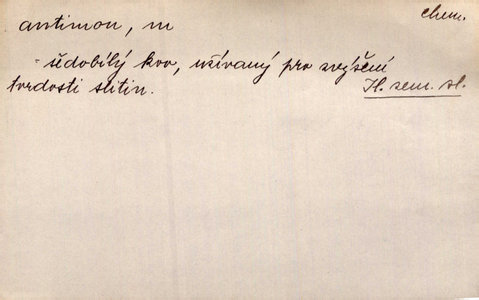 antimon, m chem.
- šedobílý kov, užívaný pro zvýšení
tvrdosti slitin. Il. sem. sl.